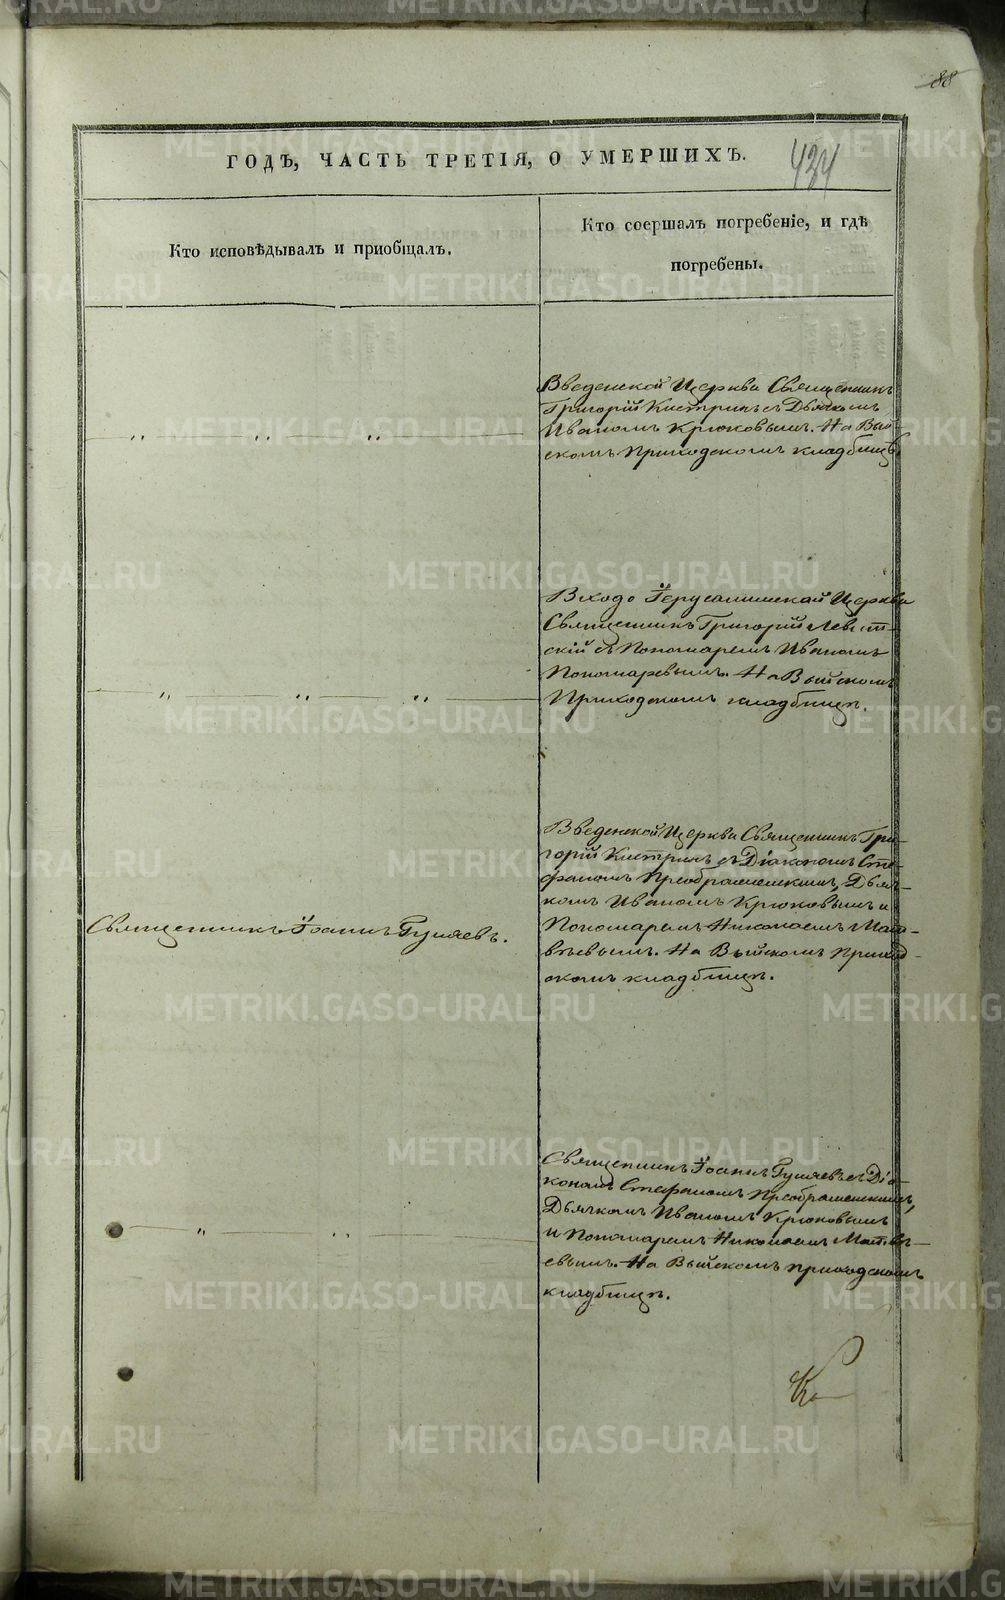 88
434
ГОДЪ, ЧАСТЬ ТРЕТІЯ, О УМЕРШИХЪ.
Кто исповѣдывалъ и приобщалъ.
Кто соершалъ погребеніе, и гдѣ
погребены.
Введенской Церкви Священникъ
Григорій Кистринъ съ Дьячкомъ
Иваномъ Крюковымъ. На Вый-
скомъ Приходскомъ кладбищѣ.
Входо Іерусалимской Церкви
Священникъ Григорій Левит-
скій съ Пономаремъ Иваномъ
Пономаревымъ. На Выйскомъ
Приходскомъ кладбищѣ.
Священникъ Іоаннъ Гуляевъ.
Введенской Церкви Священникъ Гри-
горій Кистринъ съ Діакономъ Сте-
фаномъ Преображенскимъ, Дьяч-
комъ Иваномъ Крюковымъ и
Пономаремъ Николаемъ Мат-
вѣевымъ. На Выйскомъ Приход-
скомъ кладбищѣ.
Священникъ Іоаннъ Гуляевъ съ Діа-
кономъ Стефаномъ Преображенскимъ,
Дьячкомъ Иваномъ Крюковымъ
и Пономаремъ Николаемъ Матвѣ-
евымъ. На Выйскомъ приходскомъ
кладбищѣ.
METRIKI.GASO-URAL.RU